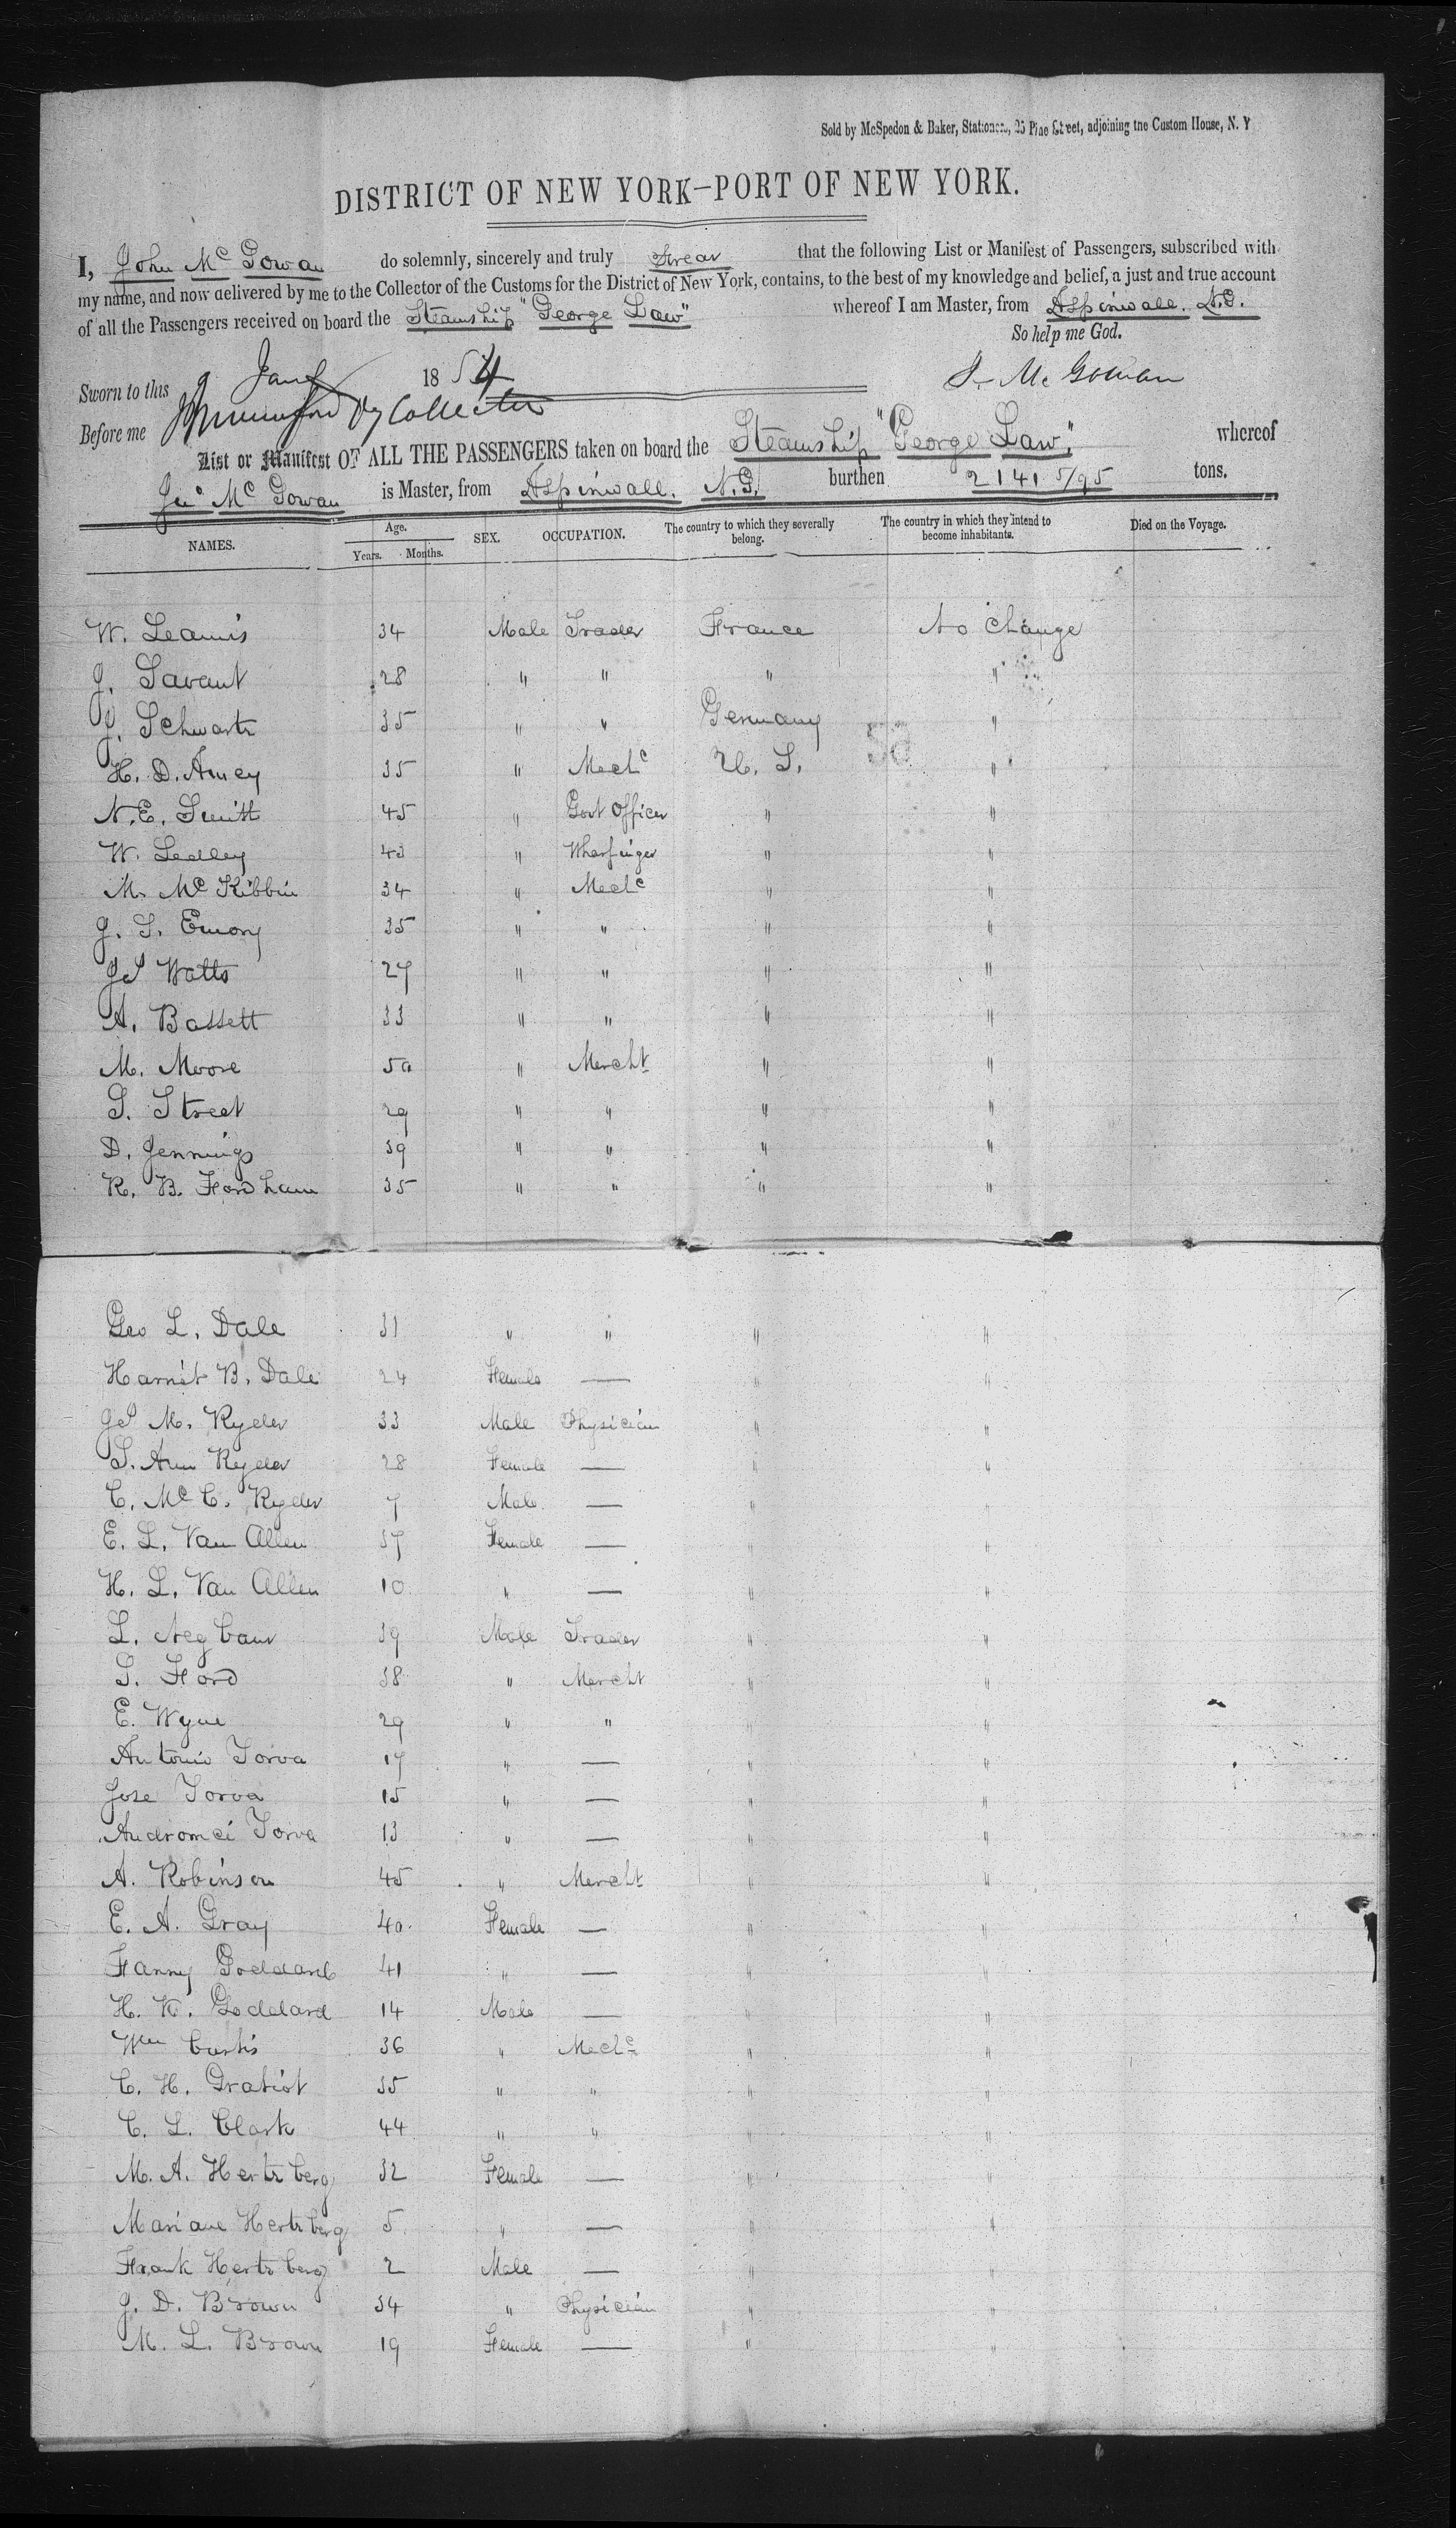 Sold by McSpedon & Baker, Stationers, 25 Pine Street, adjoining the Custom House, N. Y
DISTRICT OF NEW YORK—PORT OF NEW YORK.
I, John Mc Gowan do solemnly, sincerely and truly Swear that the following List or Manifest of Passengers, subscribed with
my name, and now delivered by me to the Collector of the Customs for the District of New York, contains, to the best of my knowledge and belief, a just and true account
of all the Passengers received on board the Steamship "George Law" whereof I am Master, from Aspinwall. N.G.
So help me God.
Sworn to this 9 Jany 1854
J. McGowan
Before me Dy Collector
List or Manifest OF ALL THE PASSENGERS taken on board the Steamship "George Law," whereof
Jno Mc Gowan is Master, from Aspinwall. N.G. burthen 2141 5/95 tons.
NAMES. Age. Years. Months. SEX. OCCUPATION. The country to which they severally belong. The country in which they intend to become inhabitants. Died on the Voyage.
W. Leamis 34 Male Trader France No Change
J. Savant 28 " " " "
J. Schwartz 35 " " Germany "
H. D. Amey 35 " Mechc U. S. "
N. E. Smith 45 " Govt Officer " "
W. Ledley 43 " Wharfinger " "
M. Mc Kibbin 34 " Mechc " "
J. S. Emory 35 " " " "
Jas Watts 27 " " " "
A. Bassett 33 " " " "
M. Moore 50 " Mercht " "
S. Street 29 " " " "
D. Jennings 39 " " " "
R. B. Fordham 35 " " " "
Geo L. Dale 31 " " " "
Harriet B. Dale 24 Female — " "
Jas M. Ryder 33 Male Physician " "
S. Ann Ryder 28 Female — " "
C. Mc C. Ryder 7 Male — " "
E. L. Van Allen 37 Female — " "
H. L. Van Allen 10 " — " "
L. Negbaur 39 Male Trader " "
S. Ford 38 " Mercht " "
E. Wyne 29 " " " "
Antonio Torva 17 " — " "
Jose Torva 15 " — " "
Andromei Torva 13 " — " "
A. Robinson 45 " Mercht " "
E. A. Gray 40 Female — " "
Fanny Goddard 41 " — " "
H. K. Goddard 14 Male — " "
Wm Curtis 36 " Mechc " "
C. H. Gratiot 35 " " " "
C. L. Clark 44 " " " "
M. A. Hertzberg 32 Female — " "
Mariane Hertzberg 5 " — " "
Frank Hertzberg 2 Male — " "
J. D. Brown 34 " Physician " "
M. L. Brown 19 Female — " "